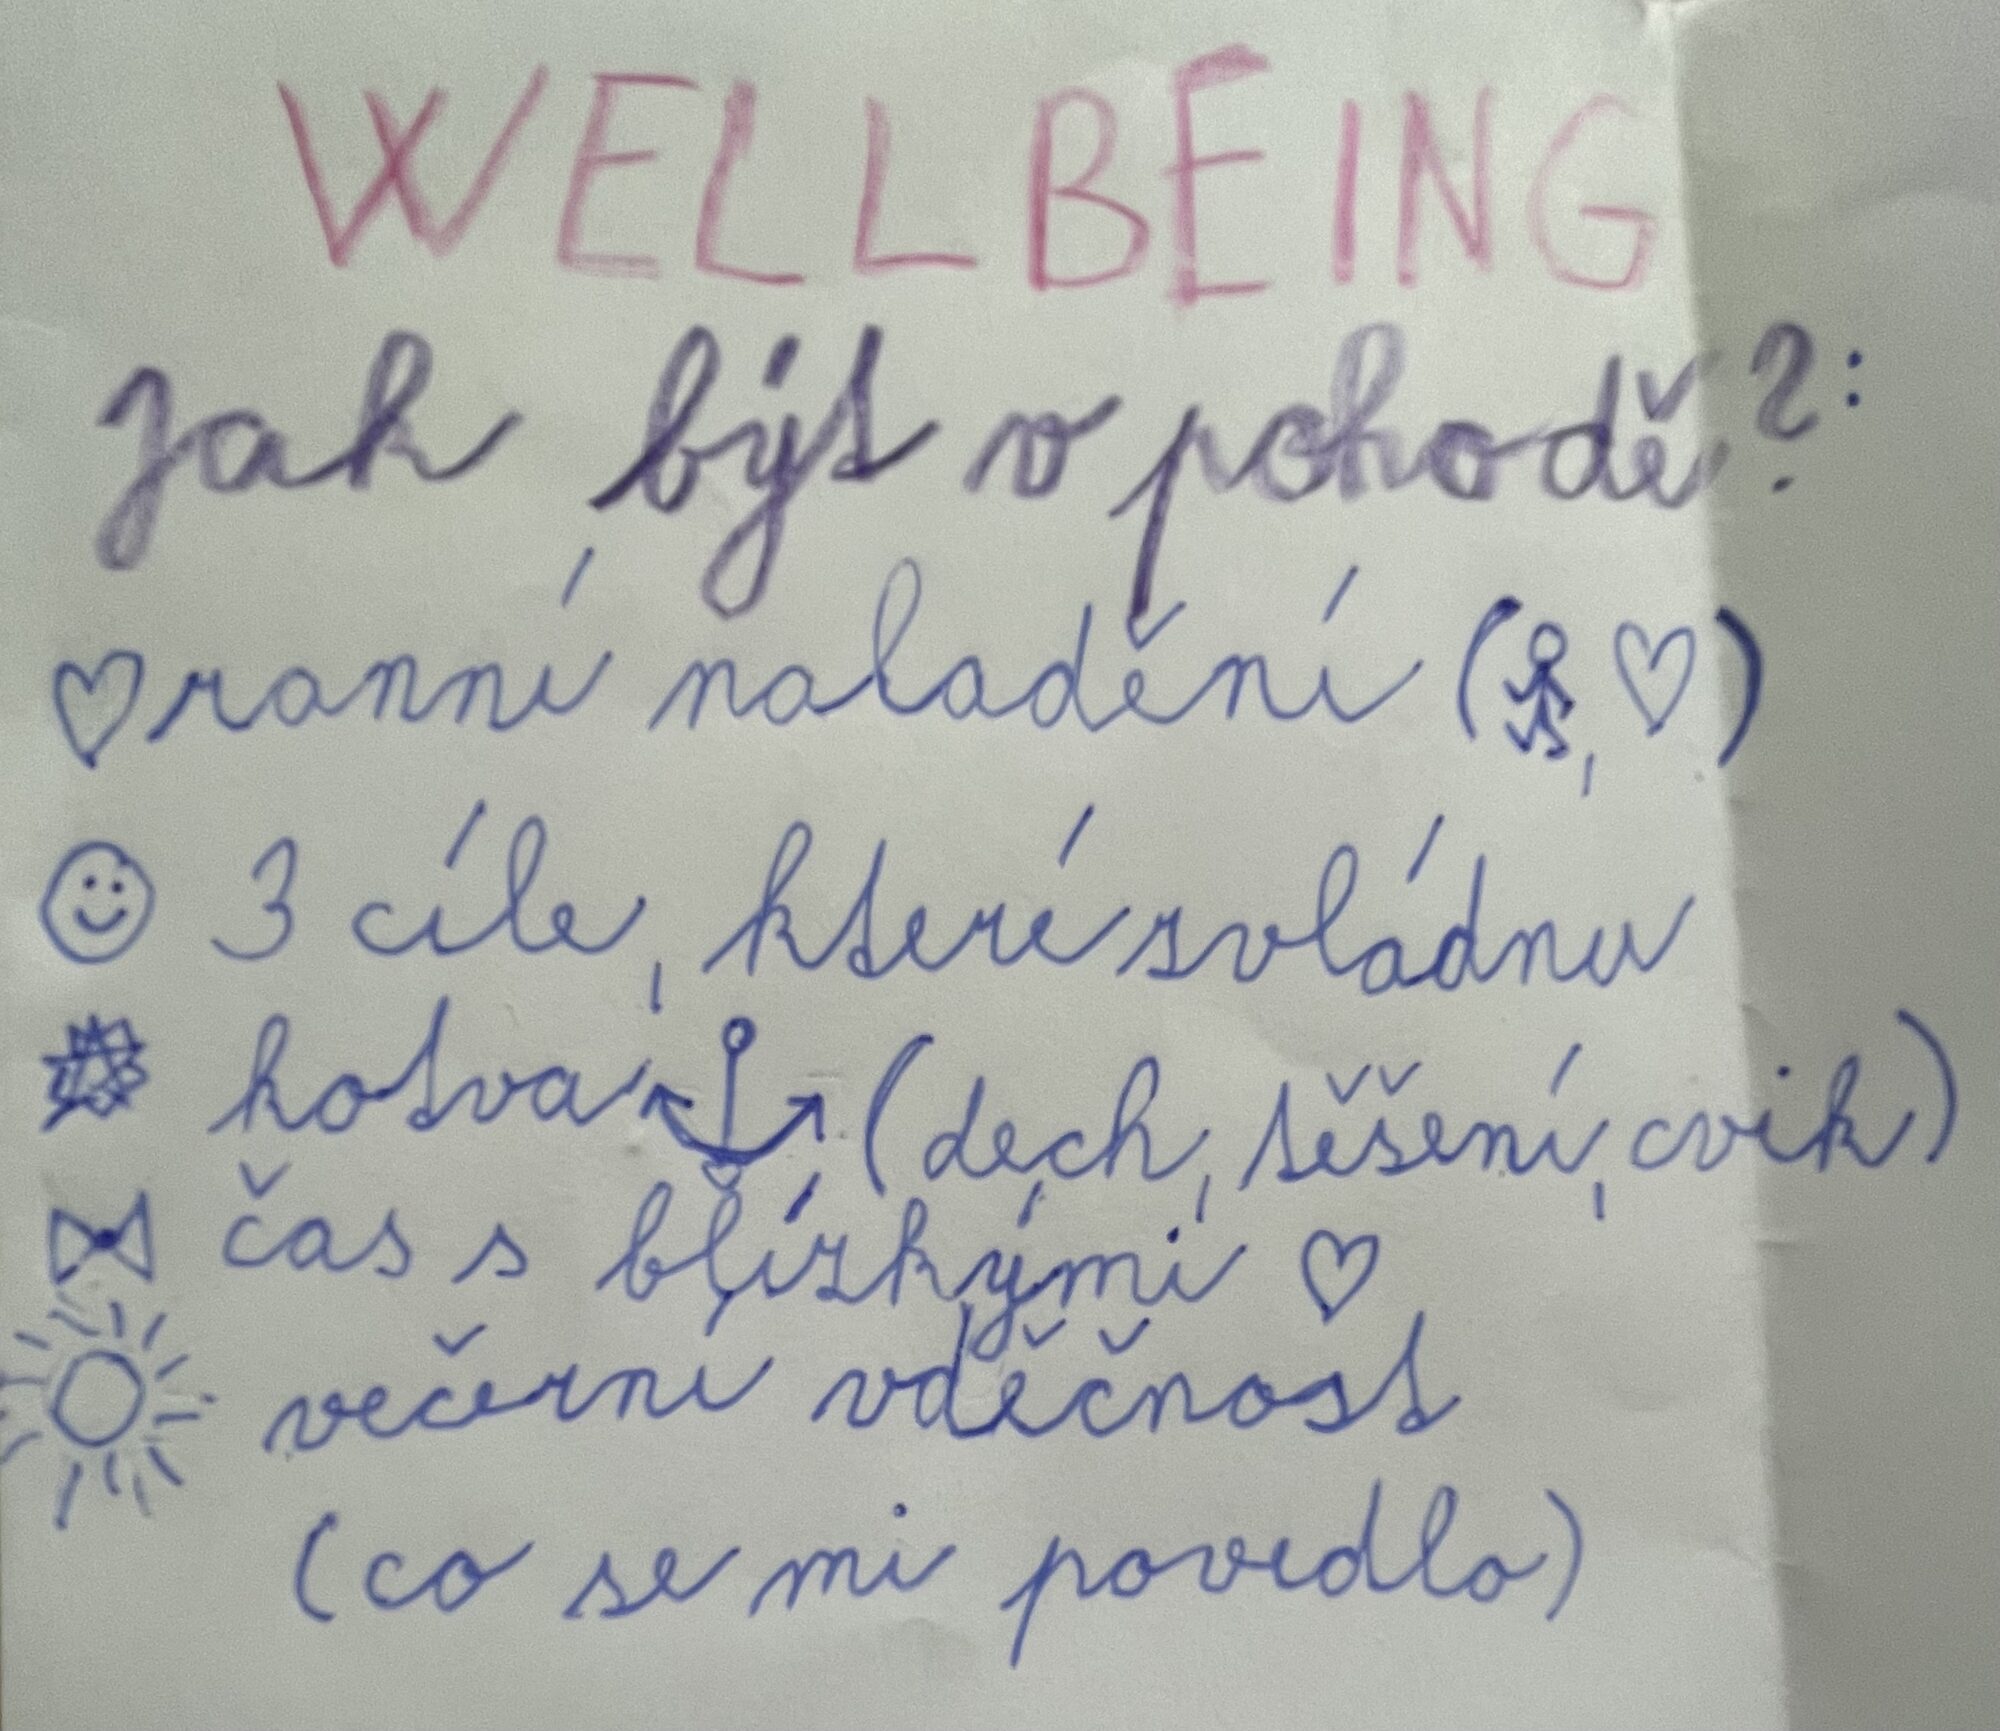 WELLBEING
Jak být v pohodě?:
ranní naladění (🏃, ♡)
☺ 3 cíle, které zvládnu
kotva ⚓ (dech, těšení, cvik)
čas s blízkými ♡
večerní vděčnost
(co se mi povedlo)